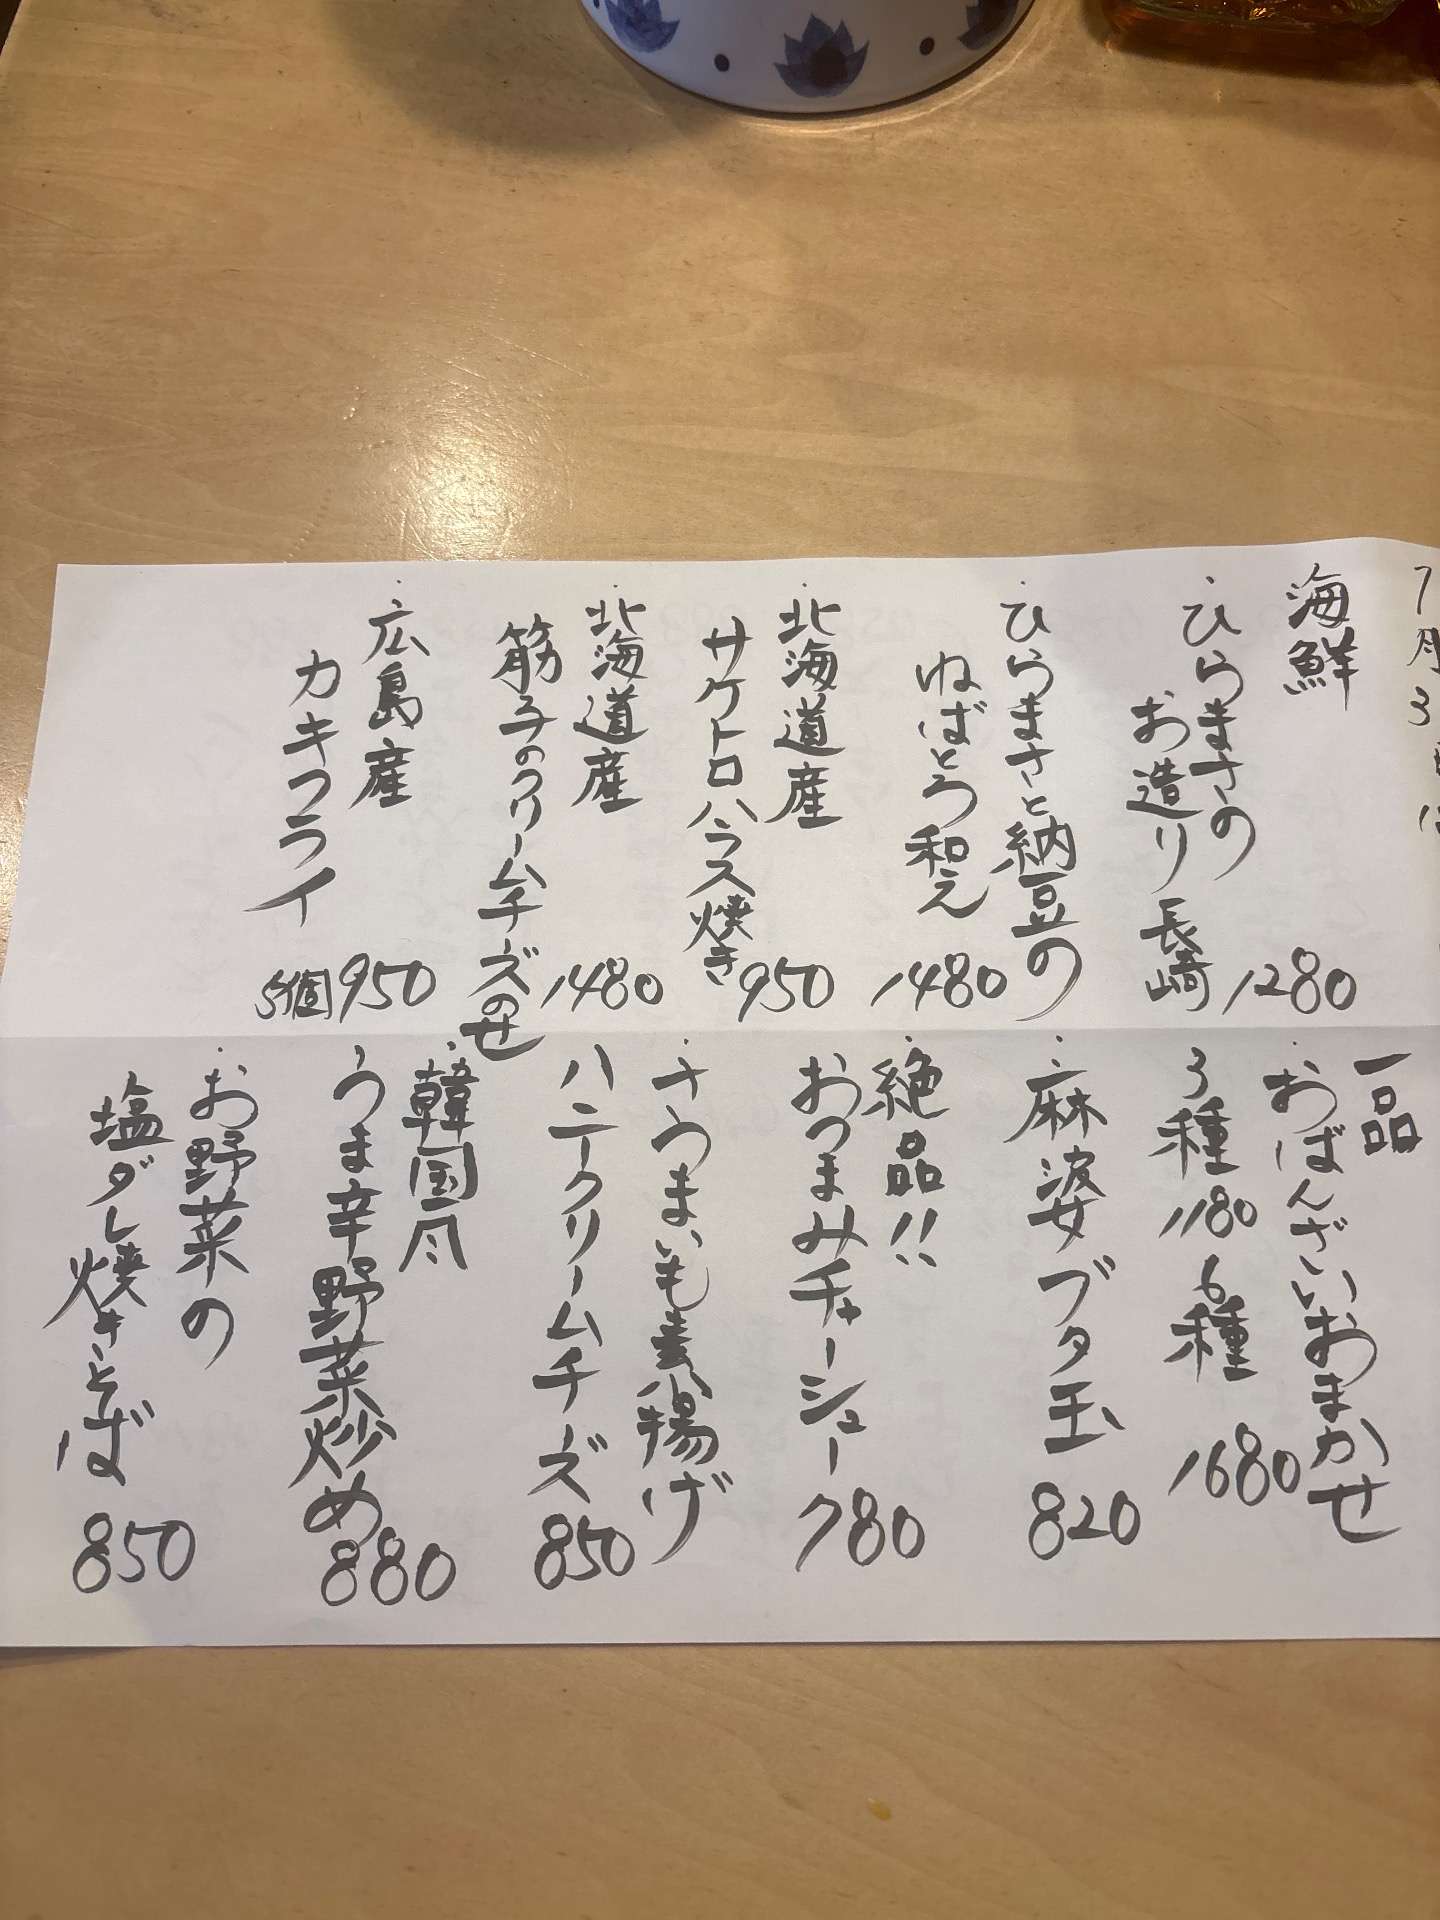 7月3日
海鮮
・ひらまさの
お造り 長崎
1280
・ひらまさと納豆の
ねばとろ和え
1480
・北海道産
サケトロハラス焼き
950
・北海道産
筋子のクリームチーズのせ
1480
・広島産
カキフライ
5個 950
一品
・おばんざいおまかせ
3種 1180
6種 1680
・麻婆ブタ玉
820
・絶品!!
おつまみチャーシュー
780
・さつまいも素揚げ
ハニークリームチーズ
850
・韓国風
うま辛野菜炒め
880
・お野菜の
塩ダレ焼きそば
850